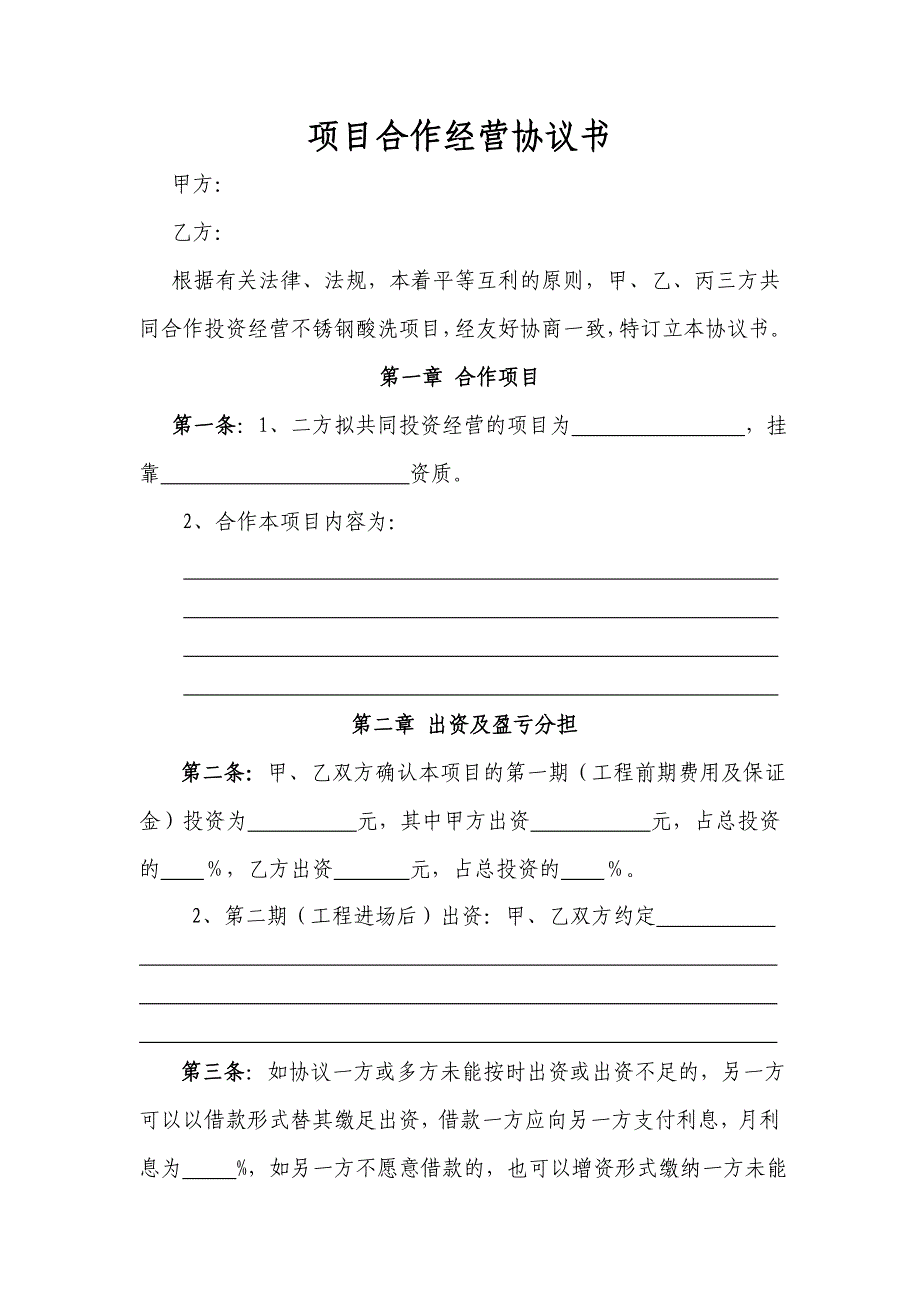 项目合作经营协议书
甲方：
乙方：
根据有关法律、法规，本着平等互利的原则，甲、乙、丙三方共
同合作投资经营不锈钢酸洗项目，经友好协商一致，特订立本协议书。
第一章 合作项目
第一条：1、二方拟共同投资经营的项目为________________，挂
靠_______________________资质。
2、合作本项目内容为：
第二章 出资及盈亏分担
第二条：甲、乙双方确认本项目的第一期（工程前期费用及保证
金）投资为__________元，其中甲方出资___________元，占总投资
的____%，乙方出资_______元，占总投资的____%。
2、第二期（工程进场后）出资：甲、乙双方约定___________
第三条：如协议一方或多方未能按时出资或出资不足的，另一方
可以以借款形式替其缴足出资，借款一方应向另一方支付利息，月利
息为_____%，如另一方不愿意借款的，也可以增资形式缴纳一方未能